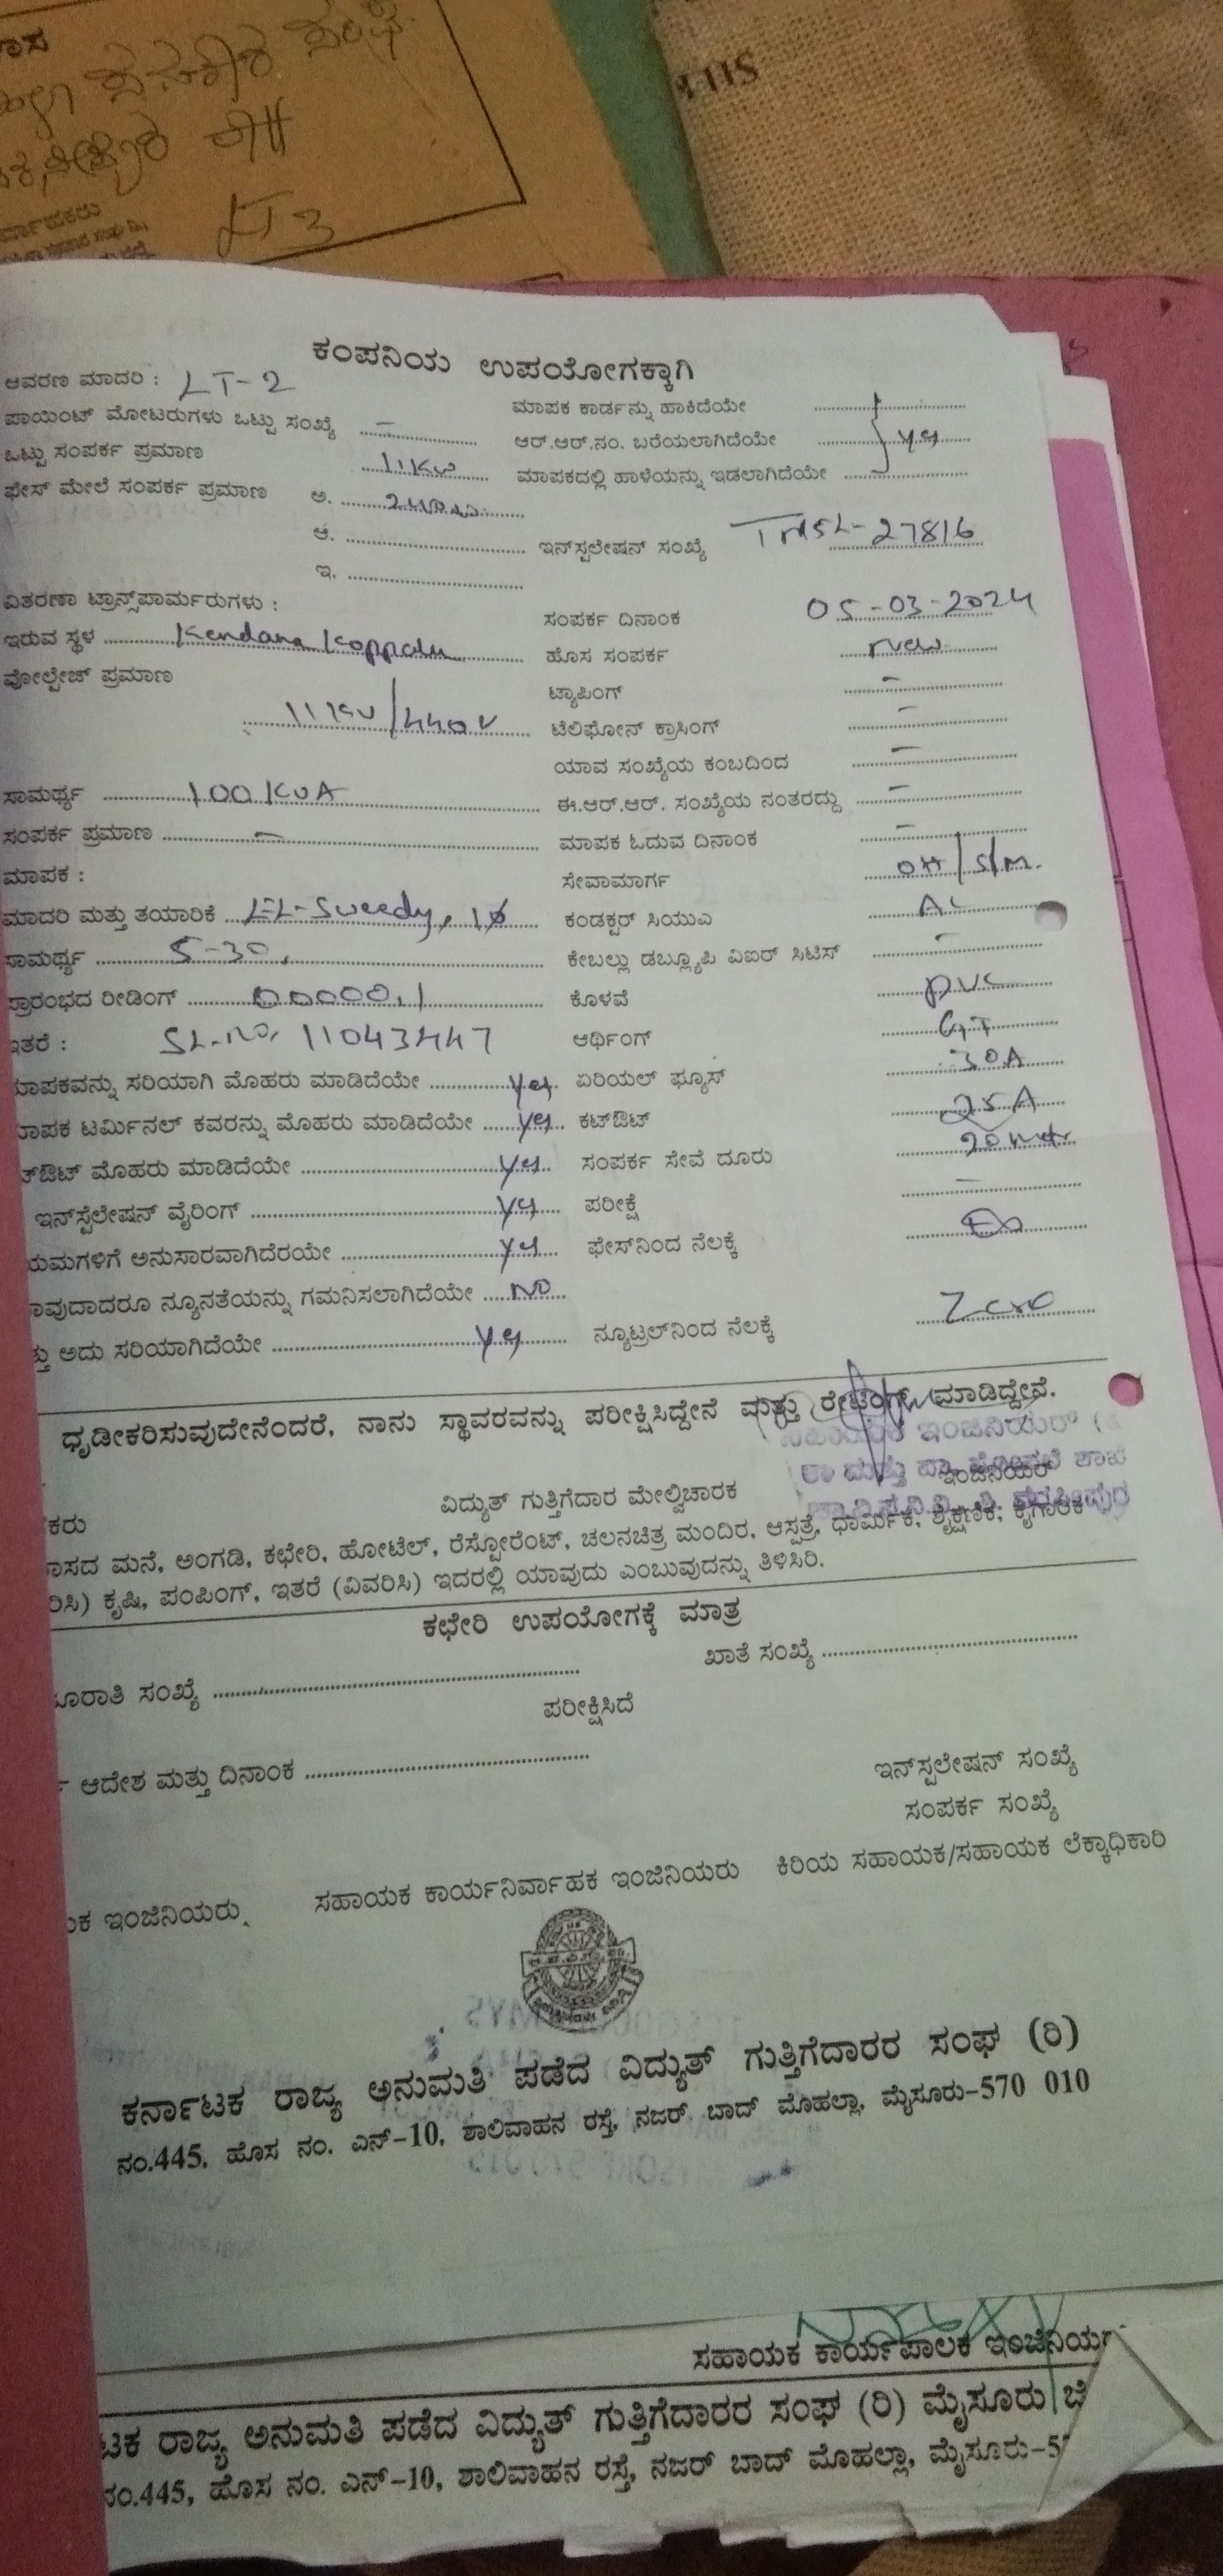 LT 3
ಕಂಪನಿಯ ಉಪಯೋಗಕ್ಕಾಗಿ
ಆವರಣ ಮಾದರಿ : LT-2
ಮಾಪಕ ಕಾರ್ಡನ್ನು ಹಾಕಿದೆಯೇ
ಪಾಯಿಂಟ್ ಮೋಟರುಗಳು ಒಟ್ಟು ಸಂಖ್ಯೆ –
ಆರ್.ಆರ್.ನಂ. ಬರೆಯಲಾಗಿದೆಯೇ } yes
ಒಟ್ಟು ಸಂಪರ್ಕ ಪ್ರಮಾಣ 1KW
ಮಾಪಕದಲ್ಲಿ ಹಾಳೆಯನ್ನು ಇಡಲಾಗಿದೆಯೇ
ಫೇಸ್ ಮೇಲೆ ಸಂಪರ್ಕ ಪ್ರಮಾಣ ಅ. 240
ಆ.
ಇನ್‌ಸ್ಟಲೇಷನ್ ಸಂಖ್ಯೆ 27816
ಇ.
ವಿತರಣಾ ಟ್ರಾನ್ಸ್‌ಪಾರ್ಮರುಗಳು :
ಸಂಪರ್ಕ ದಿನಾಂಕ 05-03-2024
ಇರುವ ಸ್ಥಳ Kendana Koppalu
ಹೊಸ ಸಂಪರ್ಕ New
ವೋಲ್ಟೇಜ್ ಪ್ರಮಾಣ
ಟ್ಯಾಪಿಂಗ್ –
11KV/440V
ಟೆಲಿಫೋನ್ ಕ್ರಾಸಿಂಗ್ –
ಯಾವ ಸಂಖ್ಯೆಯ ಕಂಬದಿಂದ –
ಸಾಮರ್ಥ್ಯ 100 KVA
ಈ.ಆರ್.ಆರ್. ಸಂಖ್ಯೆಯ ನಂತರದ್ದು –
ಸಂಪರ್ಕ ಪ್ರಮಾಣ –
ಮಾಪಕ ಓದುವ ದಿನಾಂಕ –
ಮಾಪಕ :
ಸೇವಾಮಾರ್ಗ OH/S/M.
ಮಾದರಿ ಮತ್ತು ತಯಾರಿಕೆ EL-Sweedy, 1ϕ
ಕಂಡಕ್ಟರ್ ಸಿಯುಎ AL
ಸಾಮರ್ಥ್ಯ 5-30,
ಕೇಬಲ್ಲು ಡಬ್ಲ್ಯೂಪಿ ವಿಐರ್ ಸಿಟಿಸ್ –
ಪ್ರಾರಂಭದ ರೀಡಿಂಗ್ 00000.1
ಕೊಳವೆ PVC
ಇತರೆ : SL.No. 11043447
ಆರ್ಥಿಂಗ್ G.I
ಮಾಪಕವನ್ನು ಸರಿಯಾಗಿ ಮೊಹರು ಮಾಡಿದೆಯೇ yes
ಏರಿಯಲ್ ಫ್ಯೂಸ್ 30A
ಮಾಪಕ ಟರ್ಮಿನಲ್ ಕವರನ್ನು ಮೊಹರು ಮಾಡಿದೆಯೇ yes
ಕಟ್‌ಔಟ್ 25A
ಟ್‌ಔಟ್ ಮೊಹರು ಮಾಡಿದೆಯೇ yes
ಸಂಪರ್ಕ ಸೇವೆ ದೂರು 20 mtr
ಇನ್‌ಸ್ಟೆಲೇಷನ್ ವೈರಿಂಗ್ yes
ಪರೀಕ್ಷೆ –
ಯಮಗಳಿಗೆ ಅನುಸಾರವಾಗಿದೆರಯೇ yes
ಫೇಸ್‌ನಿಂದ ನೆಲಕ್ಕೆ
ಾವುದಾದರೂ ನ್ಯೂನತೆಯನ್ನು ಗಮನಿಸಲಾಗಿದೆಯೇ No
ತ್ತು ಅದು ಸರಿಯಾಗಿದೆಯೇ yes
ನ್ಯೂಟ್ರಲ್‌ನಿಂದ ನೆಲಕ್ಕೆ Zero
ಧೃಡೀಕರಿಸುವುದೇನೆಂದರೆ, ನಾನು ಸ್ಥಾವರವನ್ನು ಪರೀಕ್ಷಿಸಿದ್ದೇನೆ ಮತ್ತು ರೇಟಿಂಗ್ ಮಾಡಿದ್ದೇನೆ.
ಇಂಜಿನಿಯರ್
ಕರು
ವಿದ್ಯುತ್ ಗುತ್ತಿಗೆದಾರ ಮೇಲ್ವಿಚಾರಕ
ಇಂಜಿನಿಯರ್
ಾಸದ ಮನೆ, ಅಂಗಡಿ, ಕಛೇರಿ, ಹೋಟೆಲ್, ರೆಸ್ಟೋರೆಂಟ್, ಚಲನಚಿತ್ರ ಮಂದಿರ, ಆಸ್ಪತ್ರೆ, ಧಾರ್ಮಿಕ, ಶೈಕ್ಷಣಿಕ, ಕೈಗಾರಿಕ
ರಿಸಿ) ಕೃಷಿ, ಪಂಪಿಂಗ್, ಇತರೆ (ವಿವರಿಸಿ) ಇದರಲ್ಲಿ ಯಾವುದು ಎಂಬುವುದನ್ನು ತಿಳಿಸಿರಿ.
ಕಛೇರಿ ಉಪಯೋಗಕ್ಕೆ ಮಾತ್ರ
ೂರಾತಿ ಸಂಖ್ಯೆ
ಖಾತೆ ಸಂಖ್ಯೆ
ಪರೀಕ್ಷಿಸಿದೆ
ಆದೇಶ ಮತ್ತು ದಿನಾಂಕ
ಇನ್‌ಸ್ಟಲೇಷನ್ ಸಂಖ್ಯೆ
ಸಂಪರ್ಕ ಸಂಖ್ಯೆ
ುಕ ಇಂಜಿನಿಯರು
ಸಹಾಯಕ ಕಾರ್ಯನಿರ್ವಾಹಕ ಇಂಜಿನಿಯರು
ಕಿರಿಯ ಸಹಾಯಕ/ಸಹಾಯಕ ಲೆಕ್ಕಾಧಿಕಾರಿ
ಕರ್ನಾಟಕ ರಾಜ್ಯ ಅನುಮತಿ ಪಡೆದ ವಿದ್ಯುತ್ ಗುತ್ತಿಗೆದಾರರ ಸಂಘ (ರಿ)
ನಂ.445, ಹೊಸ ನಂ. ಎನ್-10, ಶಾಲಿವಾಹನ ರಸ್ತೆ, ನಜರ್ ಬಾದ್ ಮೊಹಲ್ಲಾ, ಮೈಸೂರು-570 010
ಸಹಾಯಕ ಕಾರ್ಯಪಾಲಕ ಇಂಜಿನಿಯರ
ಟಕ ರಾಜ್ಯ ಅನುಮತಿ ಪಡೆದ ವಿದ್ಯುತ್ ಗುತ್ತಿಗೆದಾರರ ಸಂಘ (ರಿ) ಮೈಸೂರು ಜಿ
ನಂ.445, ಹೊಸ ನಂ. ಎನ್-10, ಶಾಲಿವಾಹನ ರಸ್ತೆ, ನಜರ್ ಬಾದ್ ಮೊಹಲ್ಲಾ, ಮೈಸೂರು-5